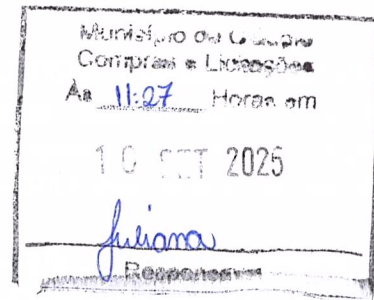 Município de
Compras e Licitações
Às 11:27 Horas em
10 SET 2025
Juliana
Responsável